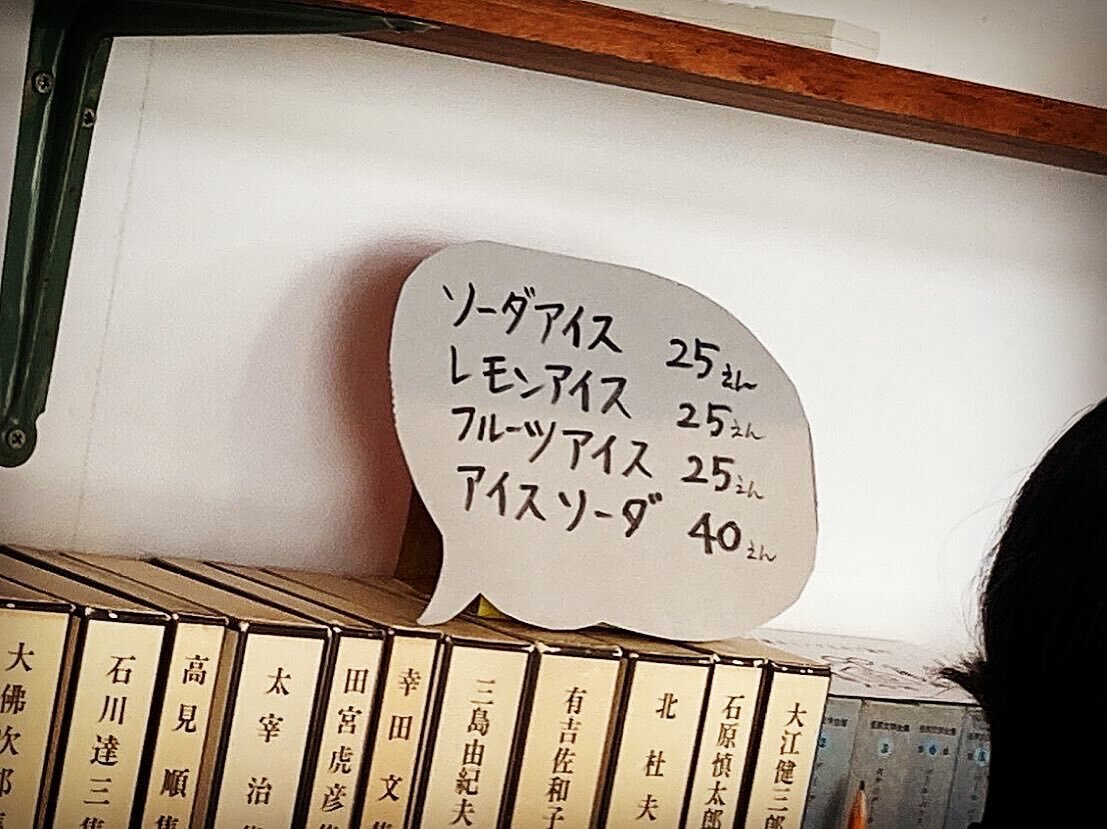 ソーダアイス 25えん
レモンアイス 25えん
フルーツアイス 25えん
アイスソーダ 40えん
大佛次郎集
石川達三集
高見順集
太宰治集
田宮虎彦集
幸田文集
三島由紀夫
有吉佐和子
北杜夫
石原慎太郎
大江健三郎